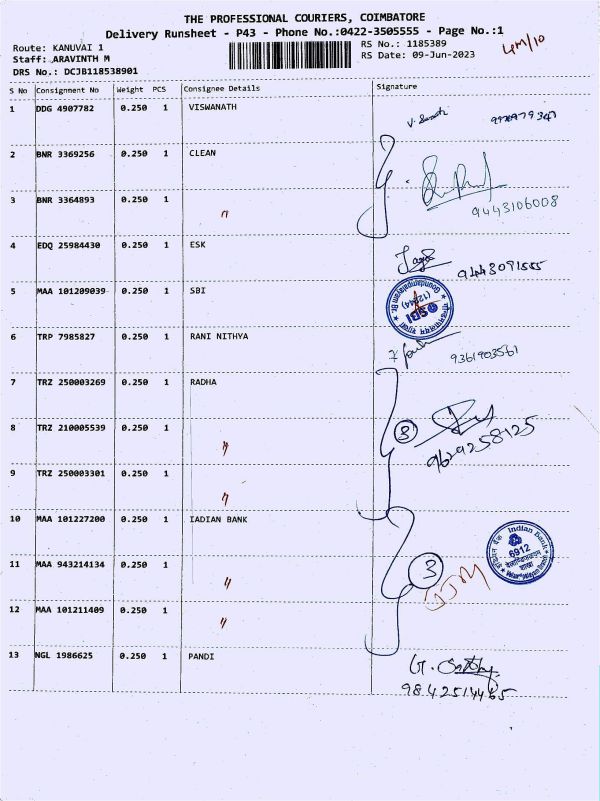 THE PROFESSIONAL COURIERS, COIMBATORE
Delivery Runsheet - P43 - Phone No.:0422-3505555 - Page No.:1
Route: KANUVAI 1
RS No.: 1185389
Staff: ARAVINTH M
RS Date: 09-Jun-2023
DRS No.: DCJB118538901
S No Consignment No Weight PCS Consignee Details Signature
1 DDG 4907782 0.250 1 VISWANATH
2 BNR 3369256 0.250 1 CLEAN
3 BNR 3364893 0.250 1 "
9443106008
4 EDQ 25984430 0.250 1 ESK
5 MAA 101209039 0.250 1 SBI
SBI
6 TRP 7985827 0.250 1 RANI NITHYA
9361903561
7 TRZ 250003269 0.250 1 RADHA
8 TRZ 210005539 0.250 1 " 3
9629258125
9 TRZ 250003301 0.250 1 "
10 MAA 101227200 0.250 1 IADIAN BANK
Indian Bank
6912
11 MAA 943214134 0.250 1 " 3
12 MAA 101211409 0.250 1 "
13 NGL 1986625 0.250 1 PANDI
9842514465